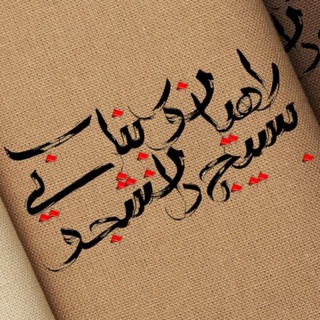 راهیان و کتاب
بسیج دانشجویی